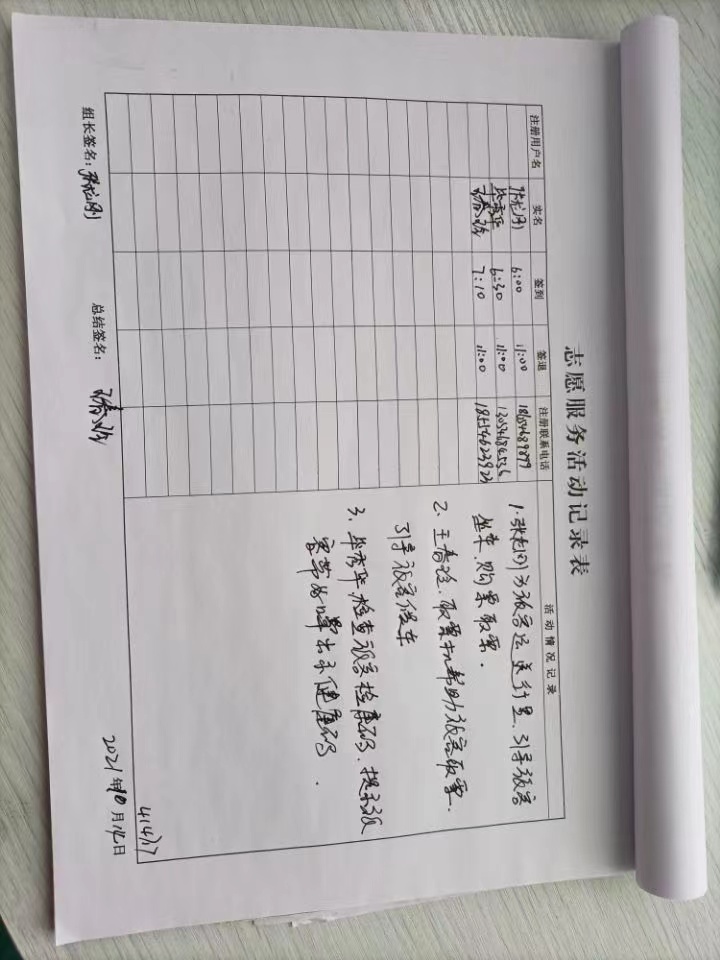 志愿服务活动记录表
注册用户名 实名 签到 签退 注册联系电话 活动情况记录
张龙刚 6:00 11:00
毕秀华 6:30 11:00
王春玲 7:10 11:00 18554623923
1.张龙刚为旅客运送行里、引导旅客
坐车、购票取票.
2、王春玲、取票机帮助旅客取票.
引导旅客候车
3、毕秀华、检查旅客检康码、提示旅
客带好口罩出示健康码.
414/17
组长签名: 张龙刚 总结签名: 王春玲 2021年10月14日